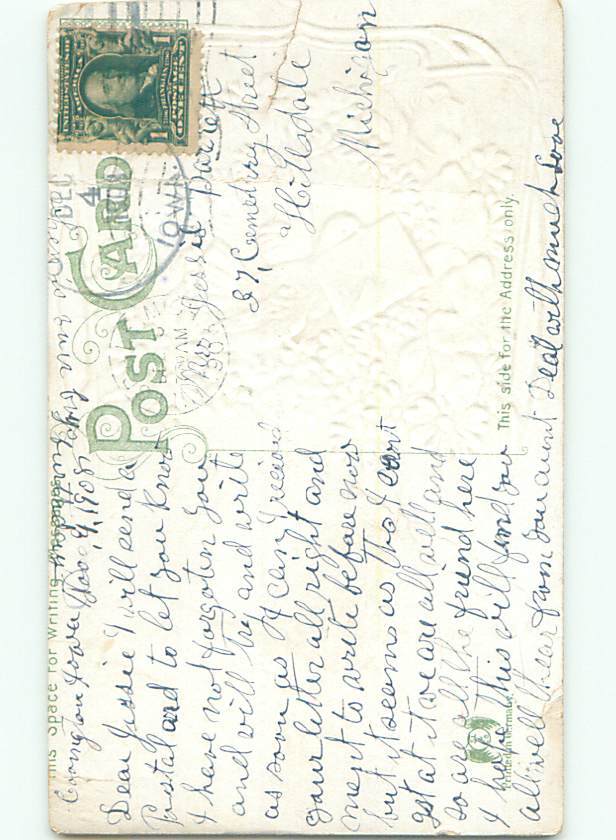 POST CARD
This Space for Writing Messages
This side for the Address only.
Printed in Germany
UNITED STATES OF AMERICA
FRANKLIN
POSTAGE
ONE CENT
1 1
DEC
4
IOWA
Iowa Dec 4, 1908
Dear Jessie I will send a
Postal card to let you know
I have not forgoten you
and will try and write
as soon as I can I recived
your letter all right and
ment to write before now
but it seems as tho I cant
get at it we are all well and
so are all the friend here
I hope this will find you
all well & hear from you aunt Deal with much Love
Miss Jessie
27, Cemetery Street
Hillsdale
Michigan